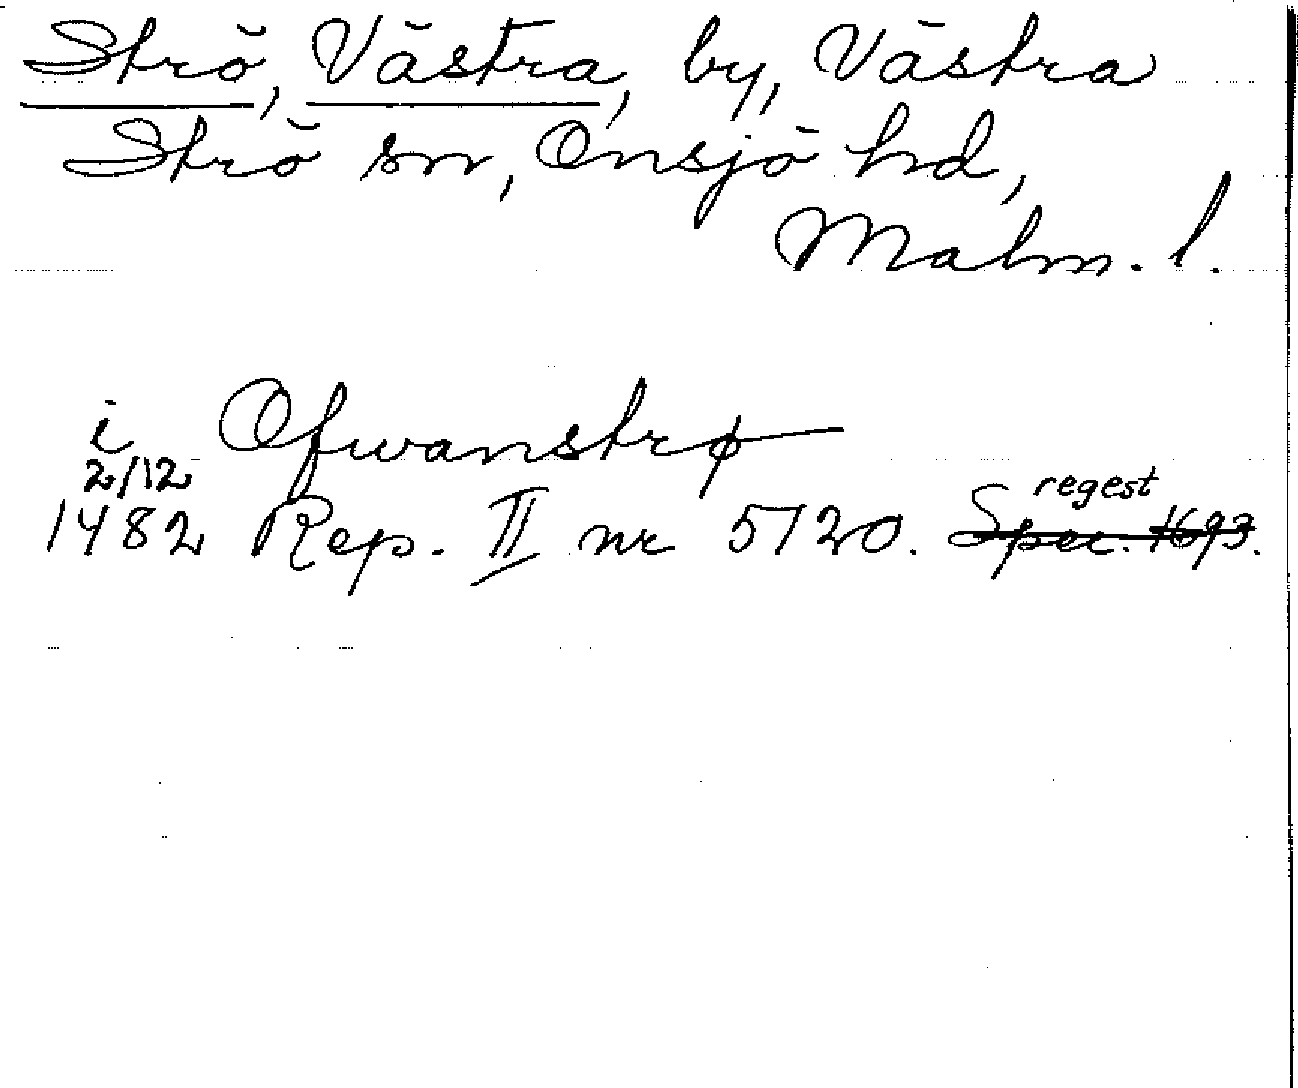 Strö, Västra, by, Västra
Strö sn, Onsjö hd,
Malm. l.
i Ofwanstrø
2/12
regest
1482 Rep. II nr 5720. Spec. 1693.